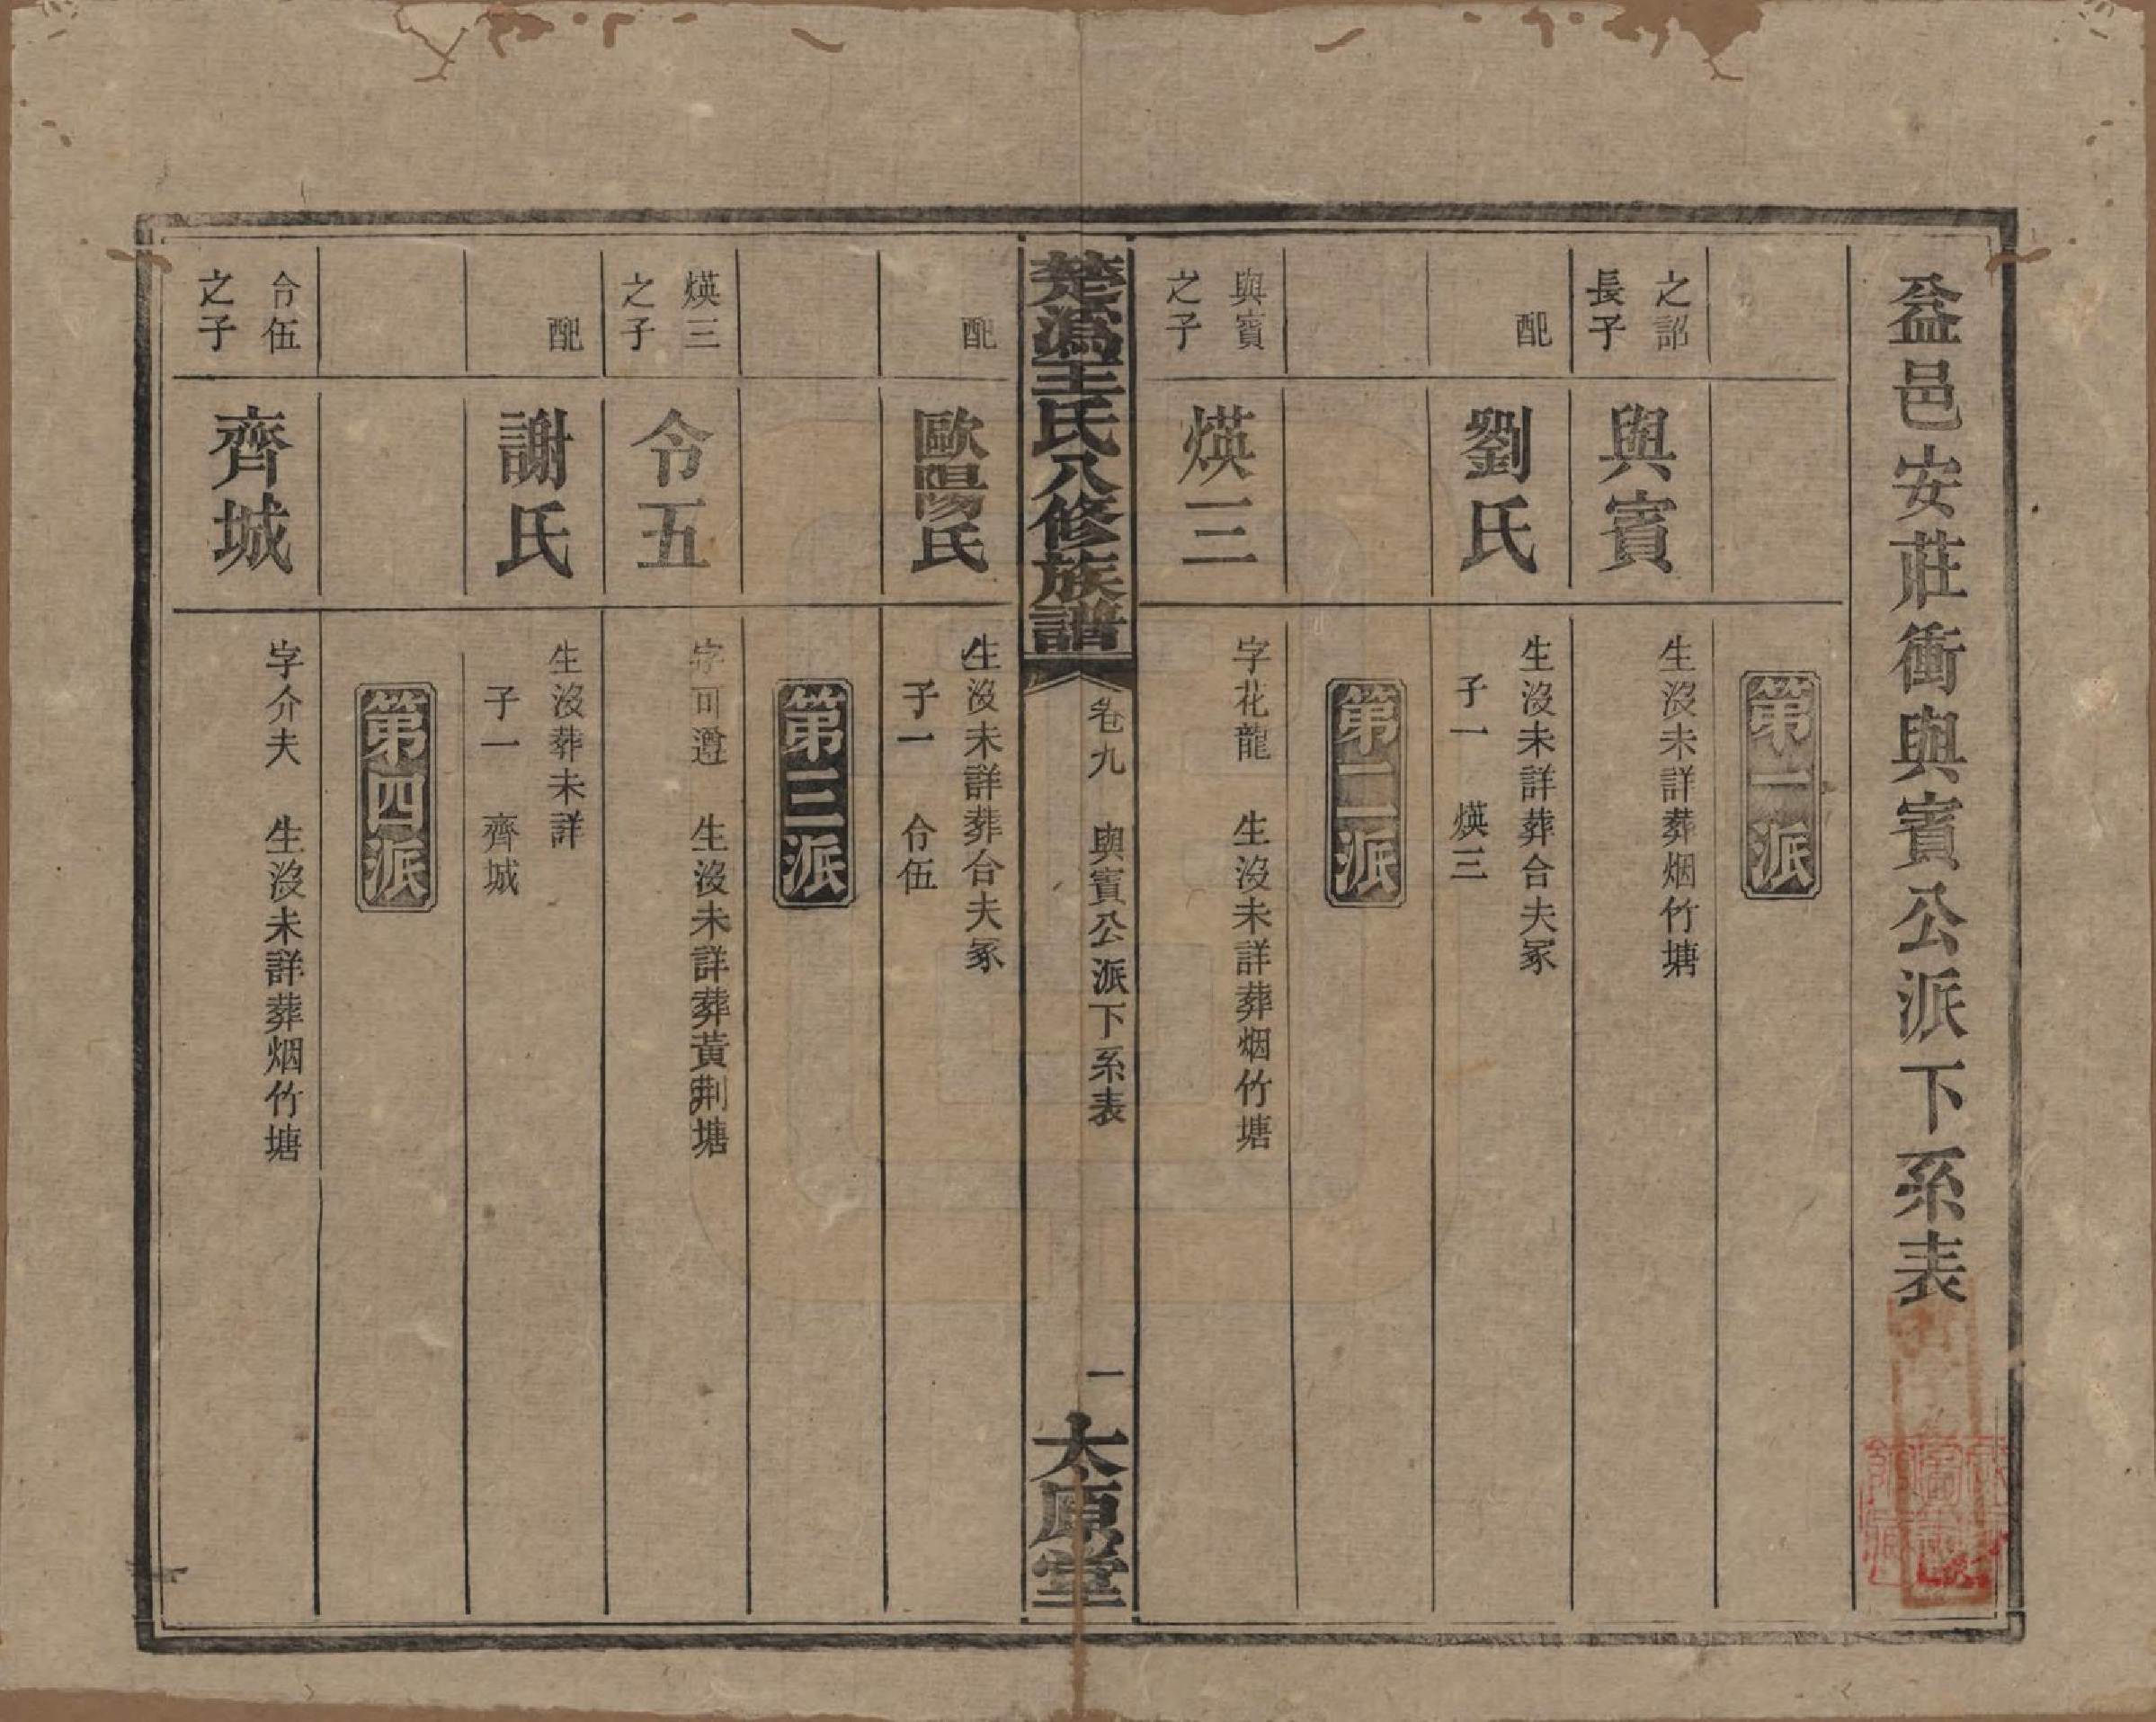 益邑安莊衝與賓公派下系表
第一派
之詔長子
與賓
生沒未詳葬烟竹塘
配
劉氏
生沒未詳葬合夫冢
子一 煐三
第二派
與賓之子
煐三
字花龍 生沒未詳葬烟竹塘
楚溈王氏八修族譜
卷九 與賓公派下系表
一
太原堂
配
歐陽氏
生沒未詳葬合夫冢
子一 令伍
第三派
煐三之子
令五
字可遵 生沒未詳葬黃荆塘
配
謝氏
生沒葬未詳
子一 齊城
第四派
令伍之子
齊城
字介夫 生沒未詳葬烟竹塘